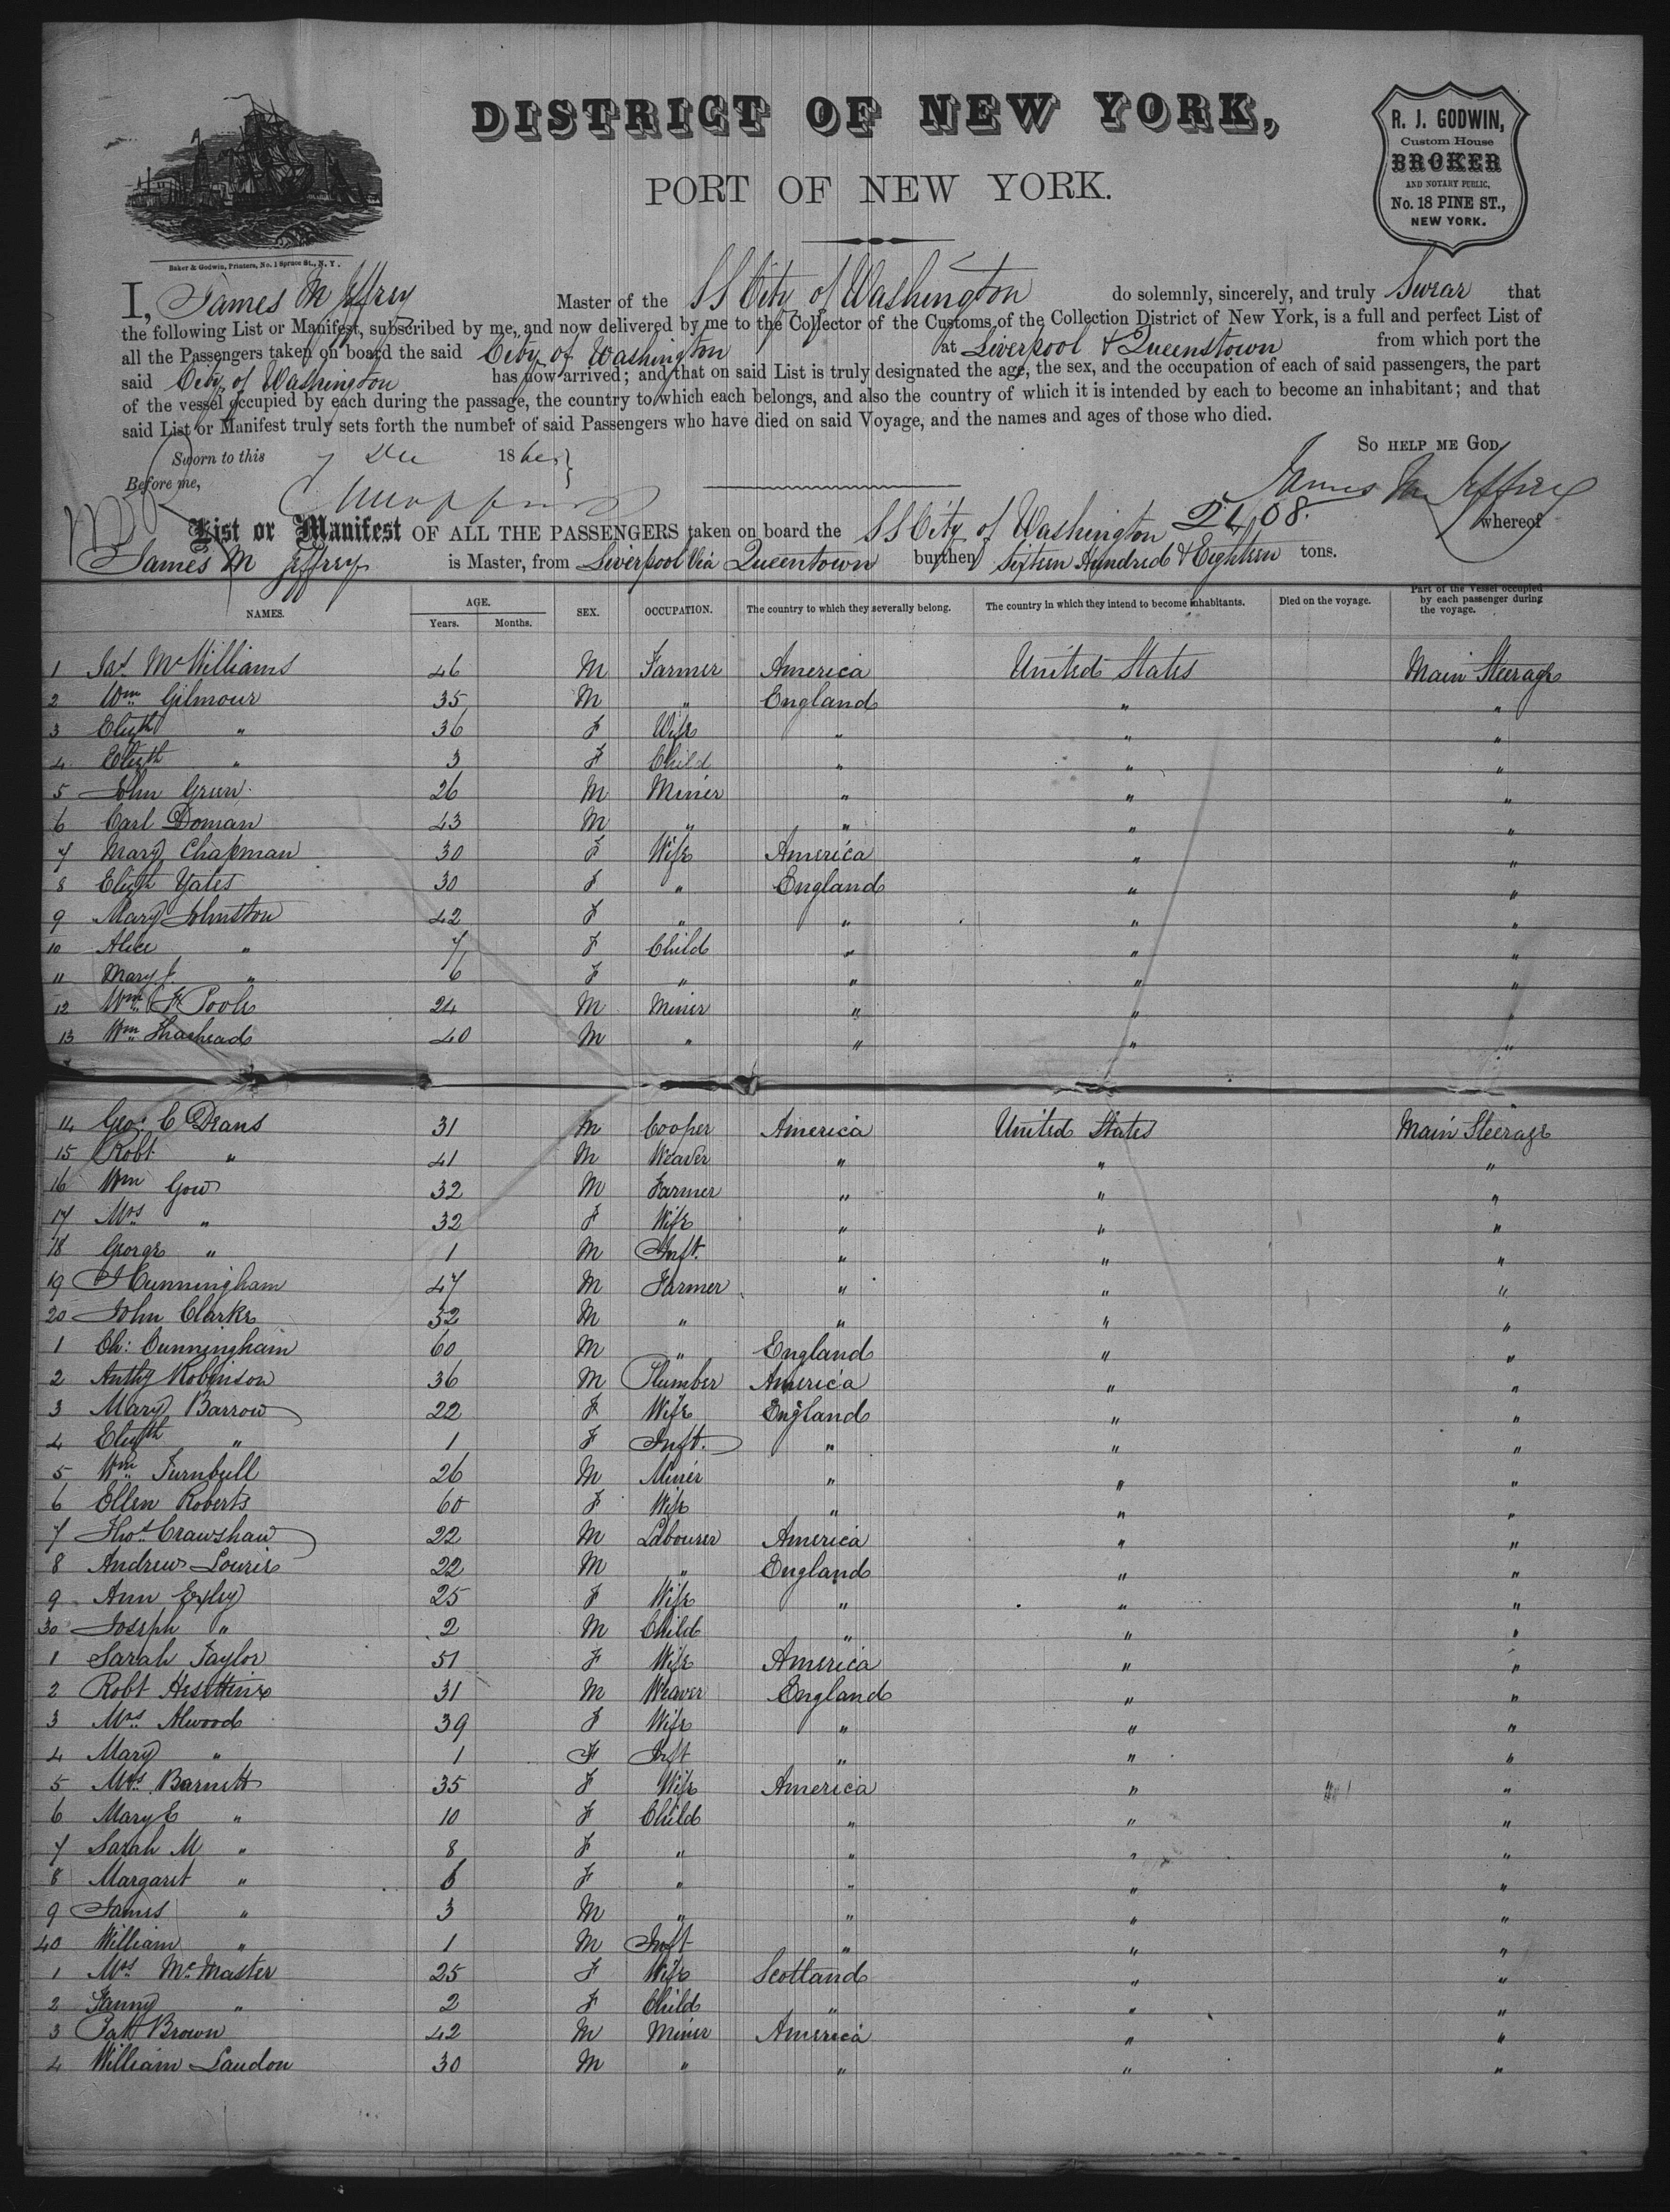 DISTRICT OF NEW YORK,
PORT OF NEW YORK.
R. J. GODWIN,
Custom House
BROKER
AND NOTARY PUBLIC,
No. 18 PINE ST.,
NEW YORK.
Baker & Godwin, Printers, No. 1 Spruce St., N. Y.
I, James M Jeffrey Master of the SS City of Washington do solemnly, sincerely, and truly Swear that
the following List or Manifest, subscribed by me, and now delivered by me to the Collector of the Customs of the Collection District of New York, is a full and perfect List of
all the Passengers taken on board the said City of Washington at Liverpool & Queenstown from which port the
said City of Washington has now arrived; and that on said List is truly designated the age, the sex, and the occupation of each of said passengers, the part
of the vessel occupied by each during the passage, the country to which each belongs, and also the country of which it is intended by each to become an inhabitant; and that
said List or Manifest truly sets forth the number of said Passengers who have died on said Voyage, and the names and ages of those who died.
So help me God
Sworn to this 7 Dec 18
Before me,
James M Jeffrey
List or Manifest OF ALL THE PASSENGERS taken on board the SS City of Washington whereof
James M Jeffrey is Master, from Liverpool Via Queentown burthen Sixteen Hundred & Eighteen tons.
NAMES. AGE. Years. Months. SEX. OCCUPATION. The country to which they severally belong. The country in which they intend to become inhabitants. Died on the voyage. Part of the Vessel occupied by each passenger during the voyage.
1 Jas McWilliams 46 M Farmer America United States Main Steerage
2 Wm Gilmour 35 M " England " "
3 Elizth " 36 F Wife " " "
4 Elizth " 3 F Child " " "
5 John Green 26 M Miner " " "
6 Carl Doman 43 M " " " "
7 Mary Chapman 30 F Wife America " "
8 Elizth Yates 30 F " England " "
9 Mary Johnston 42 F " " " "
10 Alice " 7 F Child " " "
11 Mary J. " 6 F " " " "
12 Wm Poole 24 M Miner " " "
13 Wm 40 M " " " "
14 Geo: C Deans 31 M Cooper America United States Main Steerage
15 Robt " 41 M Weaver " " "
16 Wm Gow 32 M Farmer " " "
17 Mrs " 32 F Wife " " "
18 George " 1 M Inft. " " "
19 Cunningham 47 M Farmer " " "
20 John Clarke 52 M " " " "
1 Ch: Cunningham 60 M " England " "
2 Anthy Robinson 36 M Plumber America " "
3 Mary Barrow 22 F Wife England " "
4 Elizth " 1 F Inft. " " "
5 Wm Turnbull 26 M Miner " " "
6 Ellen Roberts 60 F Wife " " "
7 Thos Crawshaw 22 M Labourer America " "
8 Andrew Lourie 22 M " England " "
9 Ann Exley 25 F Wife " " "
30 Joseph " 2 M Child " " "
1 Sarah Taylor 51 F Wife America " "
2 Robt 31 M Weaver England " "
3 Mrs Alwood 39 F Wife " " "
4 Mary " 1 F Inft " " "
5 Mrs Barnett 35 F Wife America " "
6 Mary E " 10 F Child " " "
7 Sarah M " 8 F " " " "
8 Margaret " 6 F " " " "
9 James " 3 M " " " "
40 William " 1 M Inft " " "
1 Mrs McMaster 25 F Wife Scotland " "
2 Fanny " 2 F Child " " "
3 Patk Brown 42 M Miner America " "
4 William Laudon 30 M " " " "